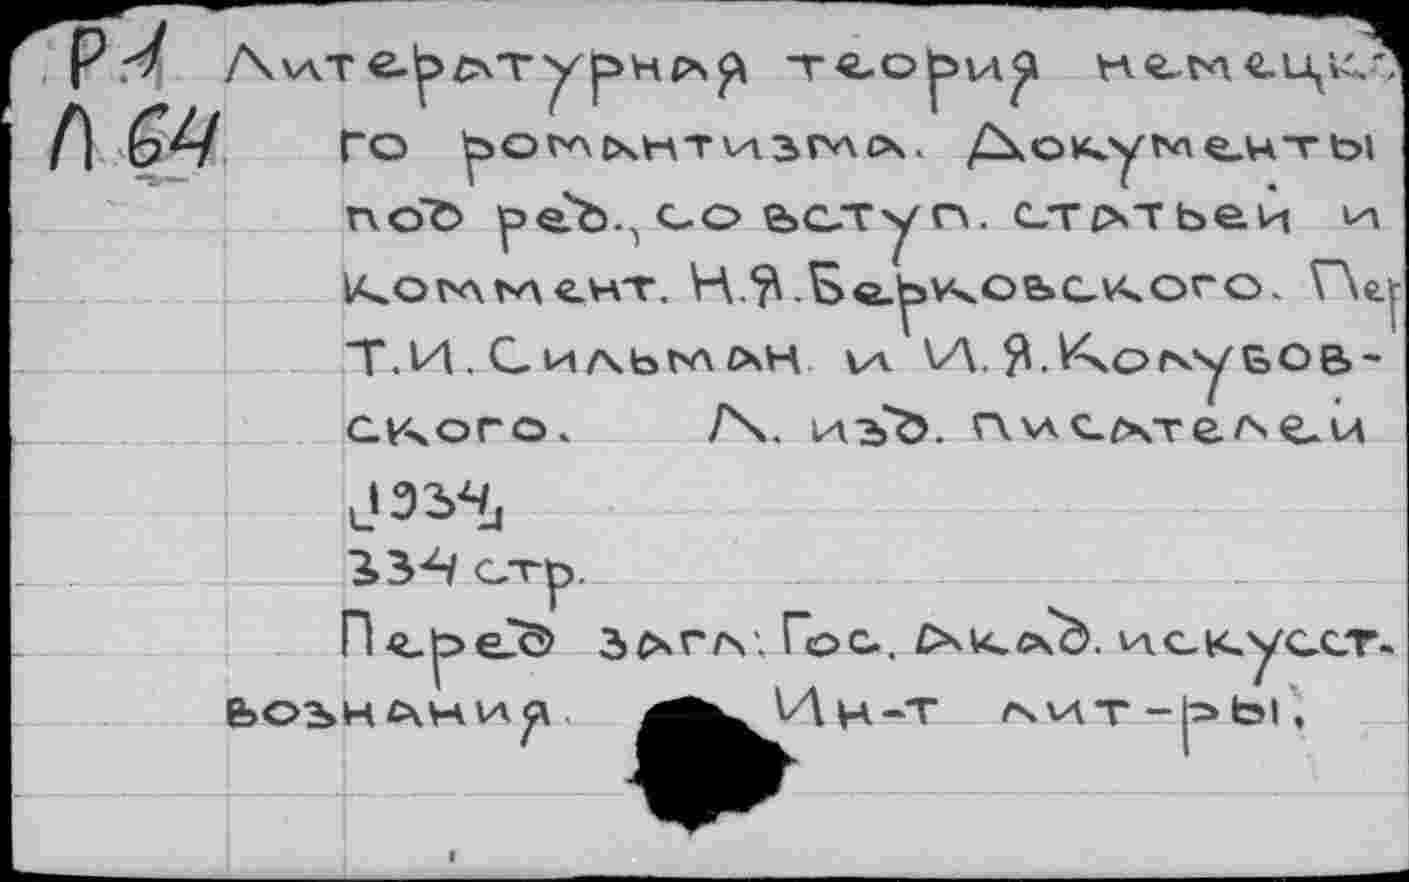 Р1 Литературная теория немецко
Л64 го романтизма. Документы
под ред., со вступ. статьей и
коммент. Н.Я.Берковского. Пер
Т.И.Сильман и И.Я.Колубов-
ского. Л. изд. писателей
[1934]
334 стр.
Перед загл: Гос. акад. искусст-
вознания. Ин-т лит-ры.